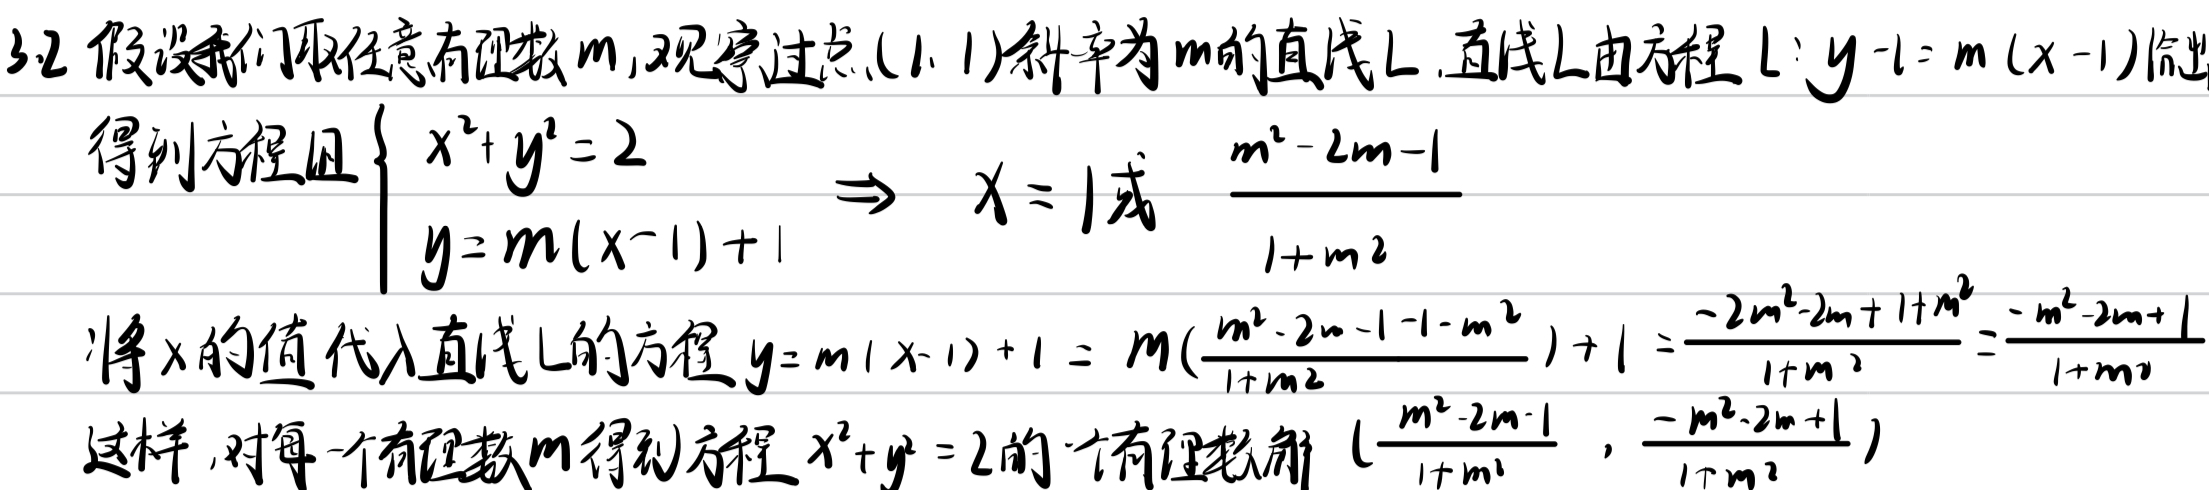 3.2 假设我们取任意有理数 m,观察过点(1, 1)斜率为 m的直线L,直线L由方程 L: y-1=m(x-1)给出
得到方程组 { x²+y²=2 y=m(x-1)+1 ⇒ x=1或 (m²-2m-1)/(1+m²)
将x的值代入直线L的方程 y=m(x-1)+1 = m((m²-2m-1-1-m²)/(1+m²))+1 = (-2m²-2m+1+m²)/(1+m²) = (-m²-2m+1)/(1+m²)
这样,对每一个有理数m得到方程 x²+y²=2的一个有理数解 ((m²-2m-1)/(1+m²), (-m²-2m+1)/(1+m²))